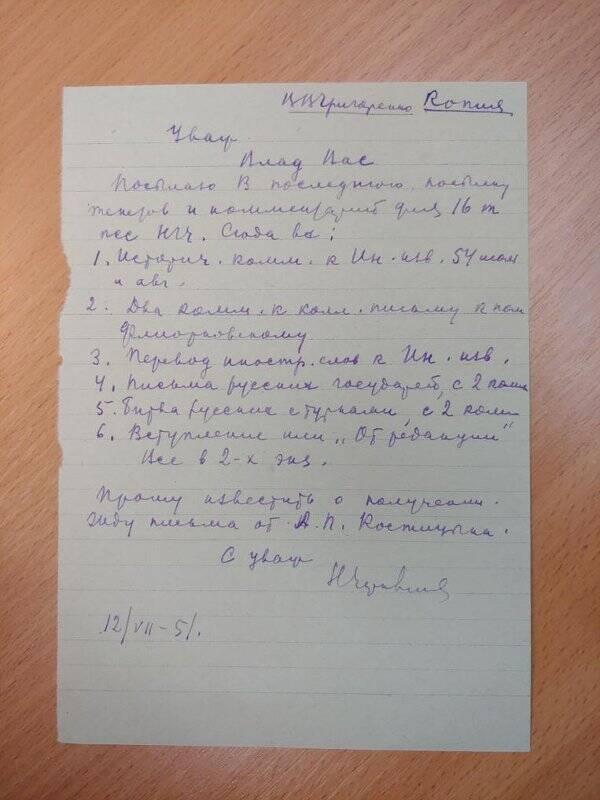 Григаренко Копия
Уваж
Влад Вас
Посылаю В последнюю посылку
и комментарий для 16 т
псс НГЧ. Сюда вх:
1. Историч. комм. к Ин. изв. 54 июл
и авг.
2. Два комм. к колл. письму к пом
3. Перевод иностр. слов к Ин. изв.
4. Письма русских государей, с 2 комм
5. Битва русских с турками, с 2 комм
6. Вступление или „От редакции"
Все в 2-х экз.
Прошу известить о получении.
Жду письма от А.П. Костицына.
С уваж
12/VII-51.